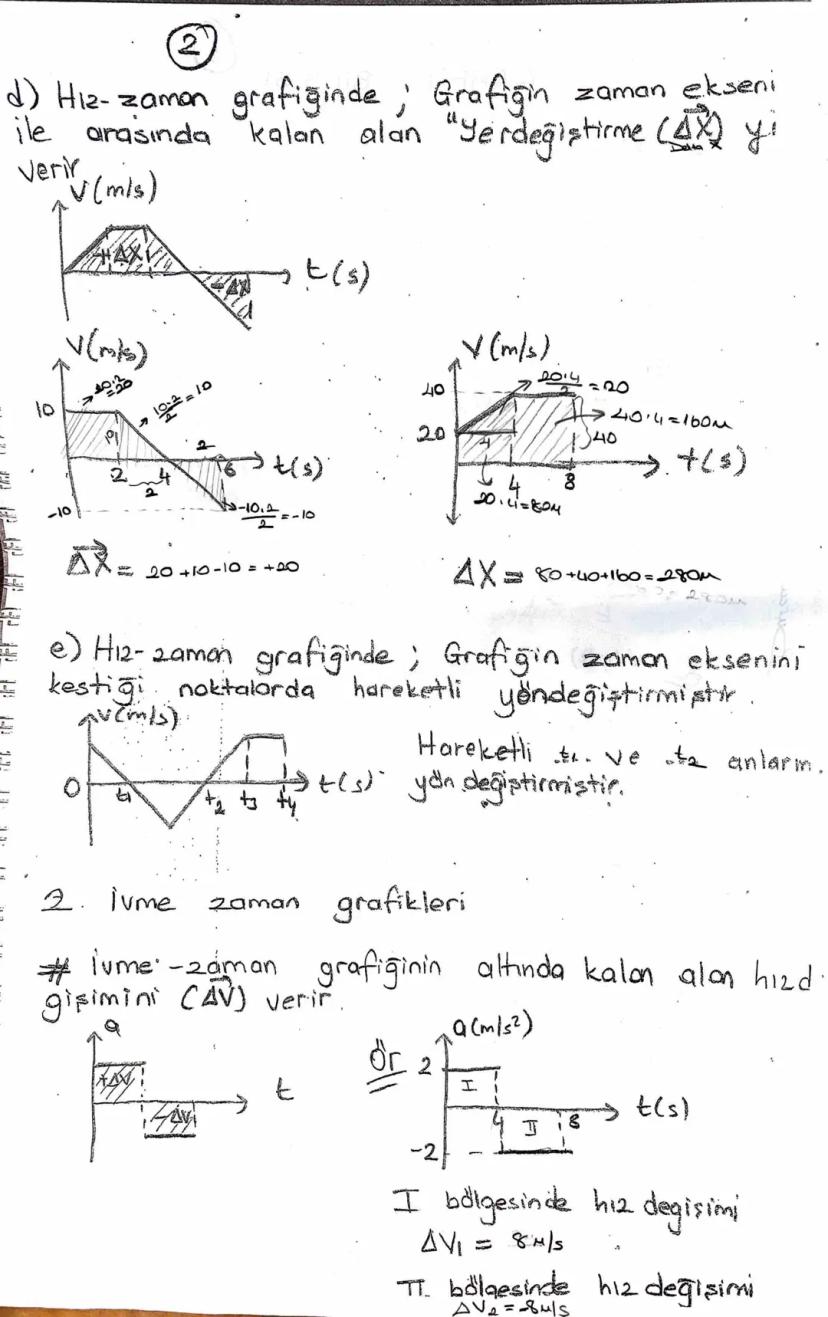 2
d) Hız-zaman grafiğinde ; Grafiğin zaman ekseni
ile arasında kalan alan "Yerdeğiştirme (ΔX) yi
Delta X
verir
V(m/s)
+ΔX
-ΔX
t(s)
V(m/s)
10
10.2=20
10.2/2=10
2
2
4
6
2
t(s)
-10
-10.2/2=-10
ΔX = 20+10-10=+20
V(m/s)
40
20
20.4/2=20
40.4=160m
40
4
4
8
t(s)
20.4=80m
ΔX = 80+40+160=280m
e) Hız-zaman grafiğinde ; Grafiğin zaman eksenini
kestiği noktalarda hareketli yöndeğiştirmiştir.
V(m/s)
0
t1
t2
t3
t4
t(s)
Hareketli .t1. ve .t2 anların.
yön değiştirmiştir.
2. İvme zaman grafikleri
# İvme-zaman grafiğinin altında kalan alan hızd
gişimini (ΔV) verir.
a
+ΔV
-ΔV
t
Ör
a(m/s²)
2
I
4
II
8
t(s)
-2
I bölgesinde hız degişimi
ΔV1 = 8m/s
II. bölgesinde hız değişimi
ΔV2=-8m/s